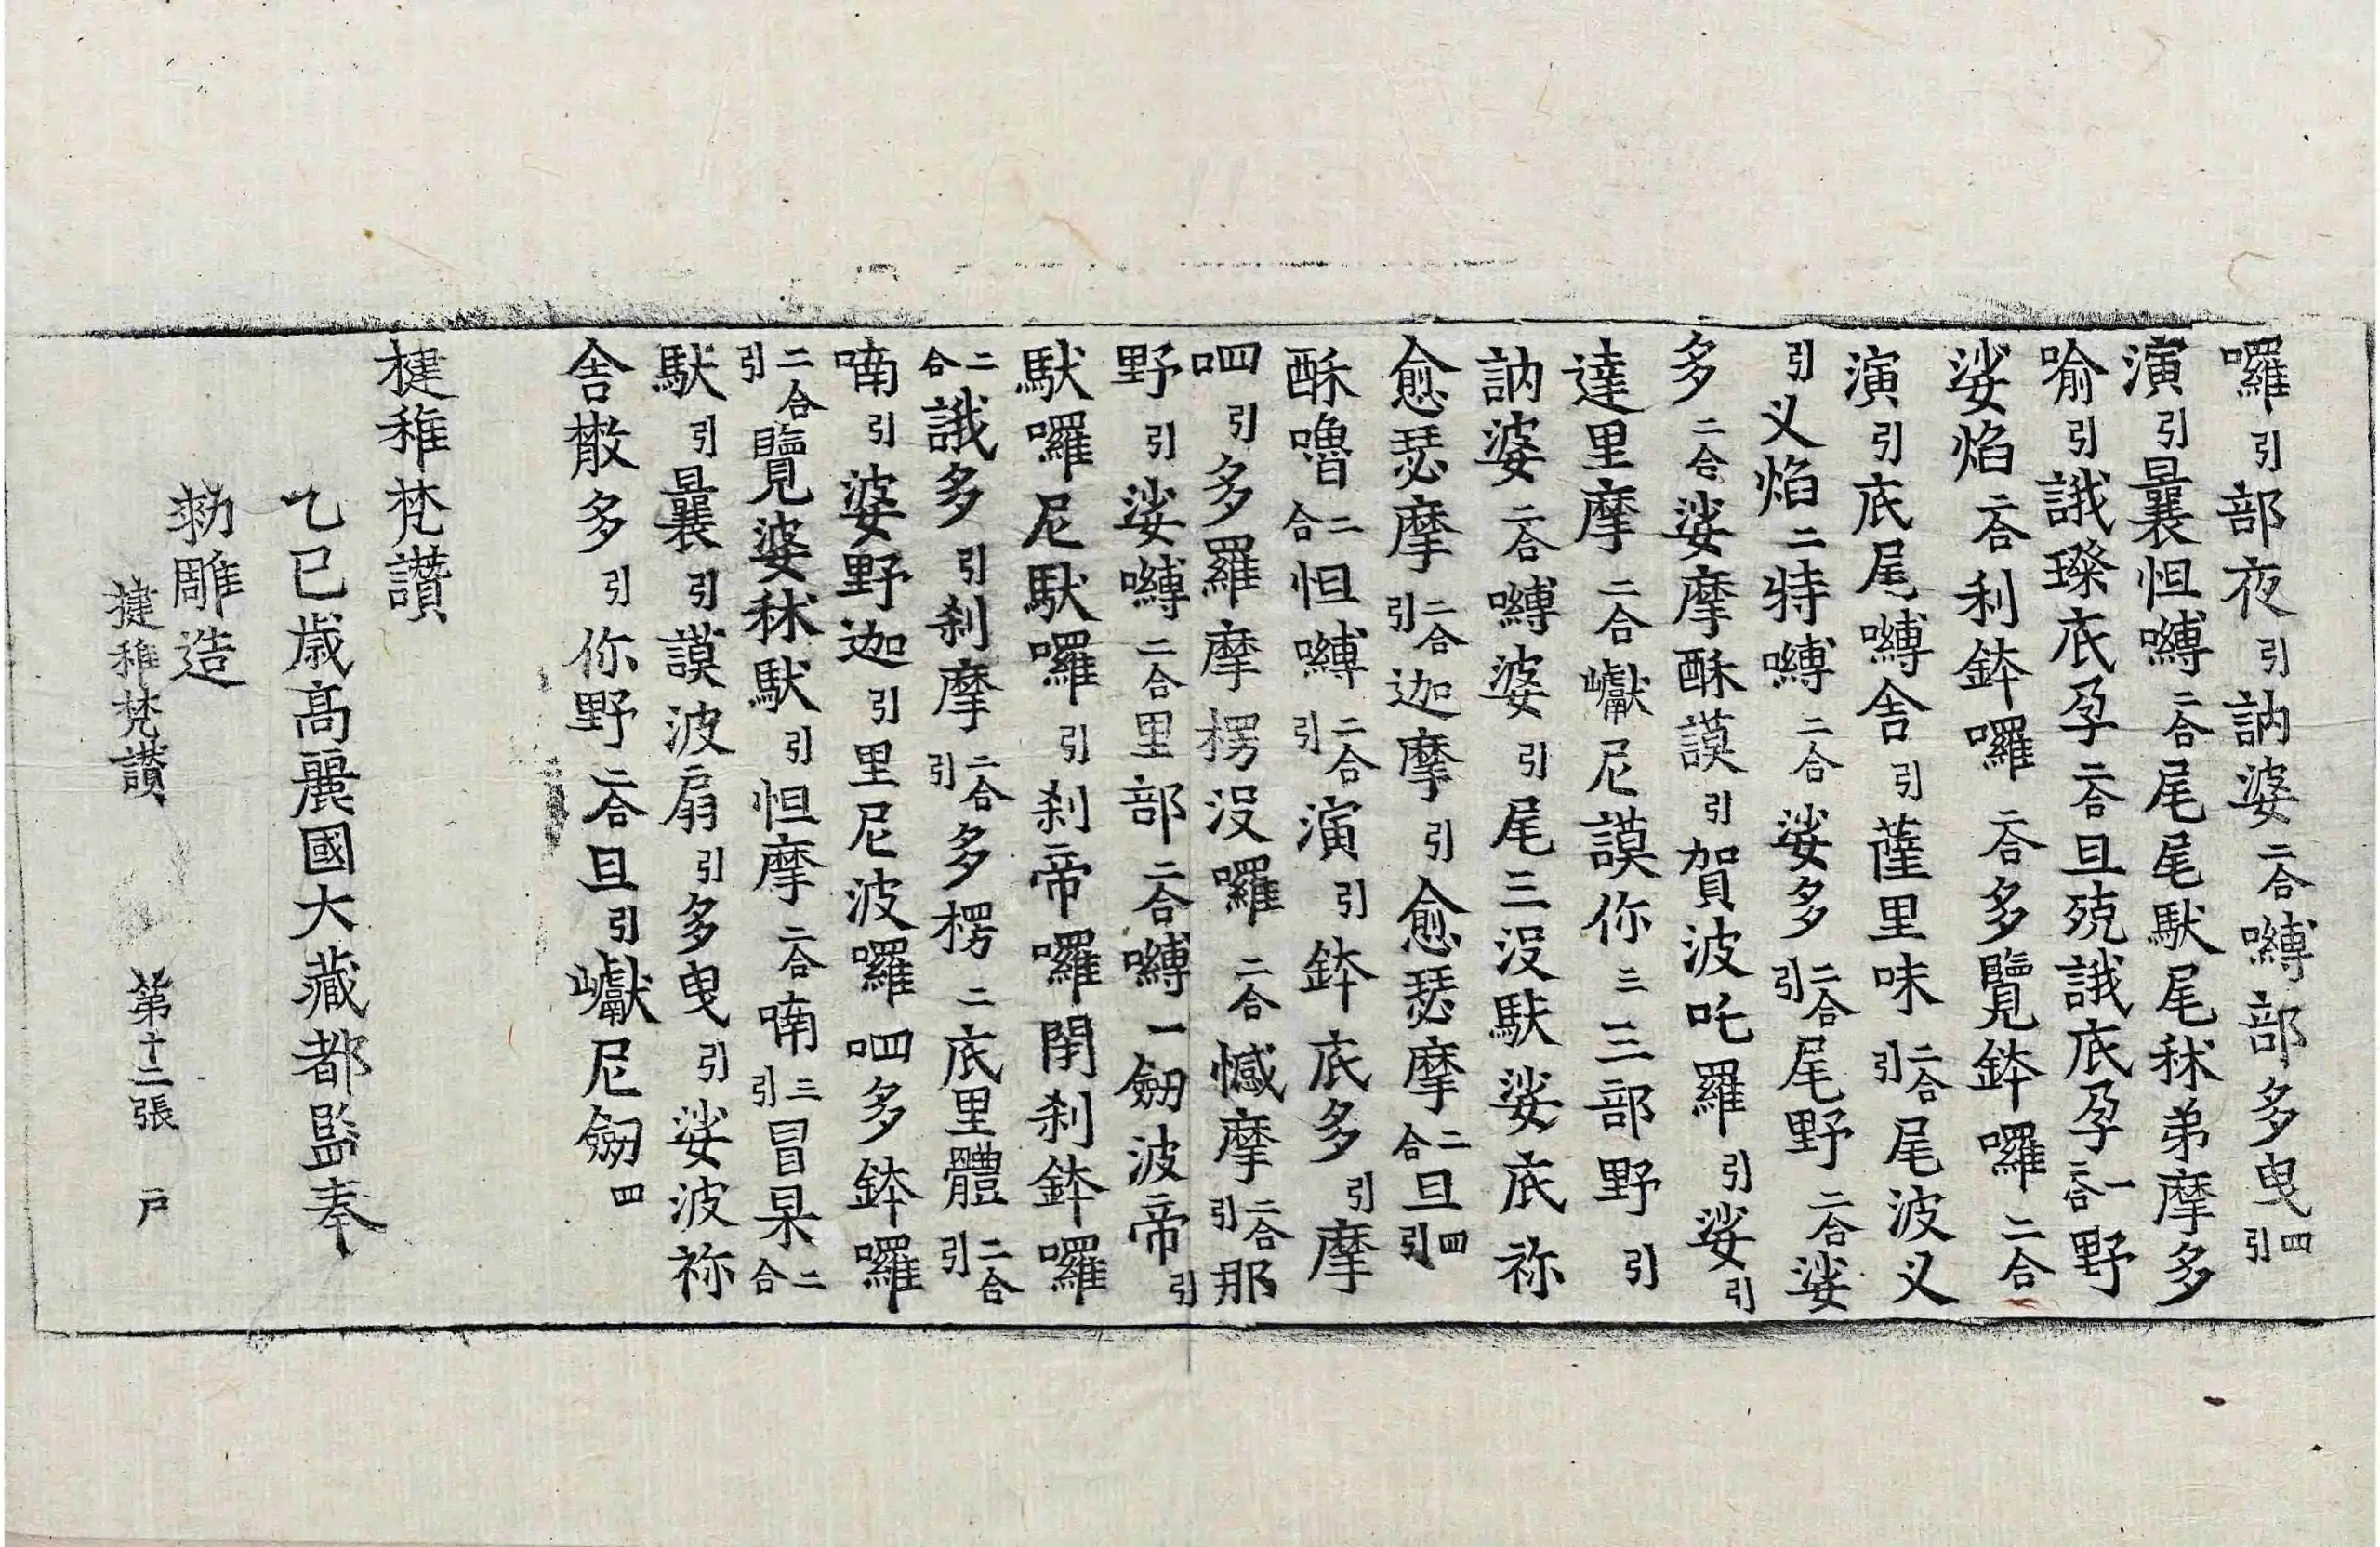 囉引部夜引訥婆二合嚩部多曳四引
演引曩怛嚩二合尾尾馱尾秫弟摩多
喻引誐璨底孕二合旦殑誐底孕一二合野
娑焰二合利鉢囉二合多覽鉢囉二合
演引底尾嚩舍引薩里味二合引尾波义
引义焰二特嚩二合娑多二合引尾野二合娑
多二合娑摩酥謨引賀波吒羅引娑引
達里摩二合巘尼謨你三三部野引
訥婆二合嚩婆引尾三沒馱娑底祢
愈瑟摩二合引迦摩引愈瑟摩二合旦四引
酥嚕二合怛嚩二合引演引鉢底多引摩
呬引多羅摩楞沒囉二合憾摩二合引那
野引娑嚩二合里部二合嚩一劒波帝引
馱囉尼馱囉引刹帝囉閉刹鉢囉
二合誐多引刹摩二合引多楞二底里體二合引
喃引婆野迦引里尼波囉呬多鉢囉
二合引覽婆秫馱引怛摩二合喃三引冒杲二合
馱引曩引謨波扇引多曳引娑波祢
舍散多引你野二合旦引巘尼劒四
揵稚梵讃
乙巳歲高麗國大藏都監奉
勑雕造
揵稚梵讃 第十二張 戶